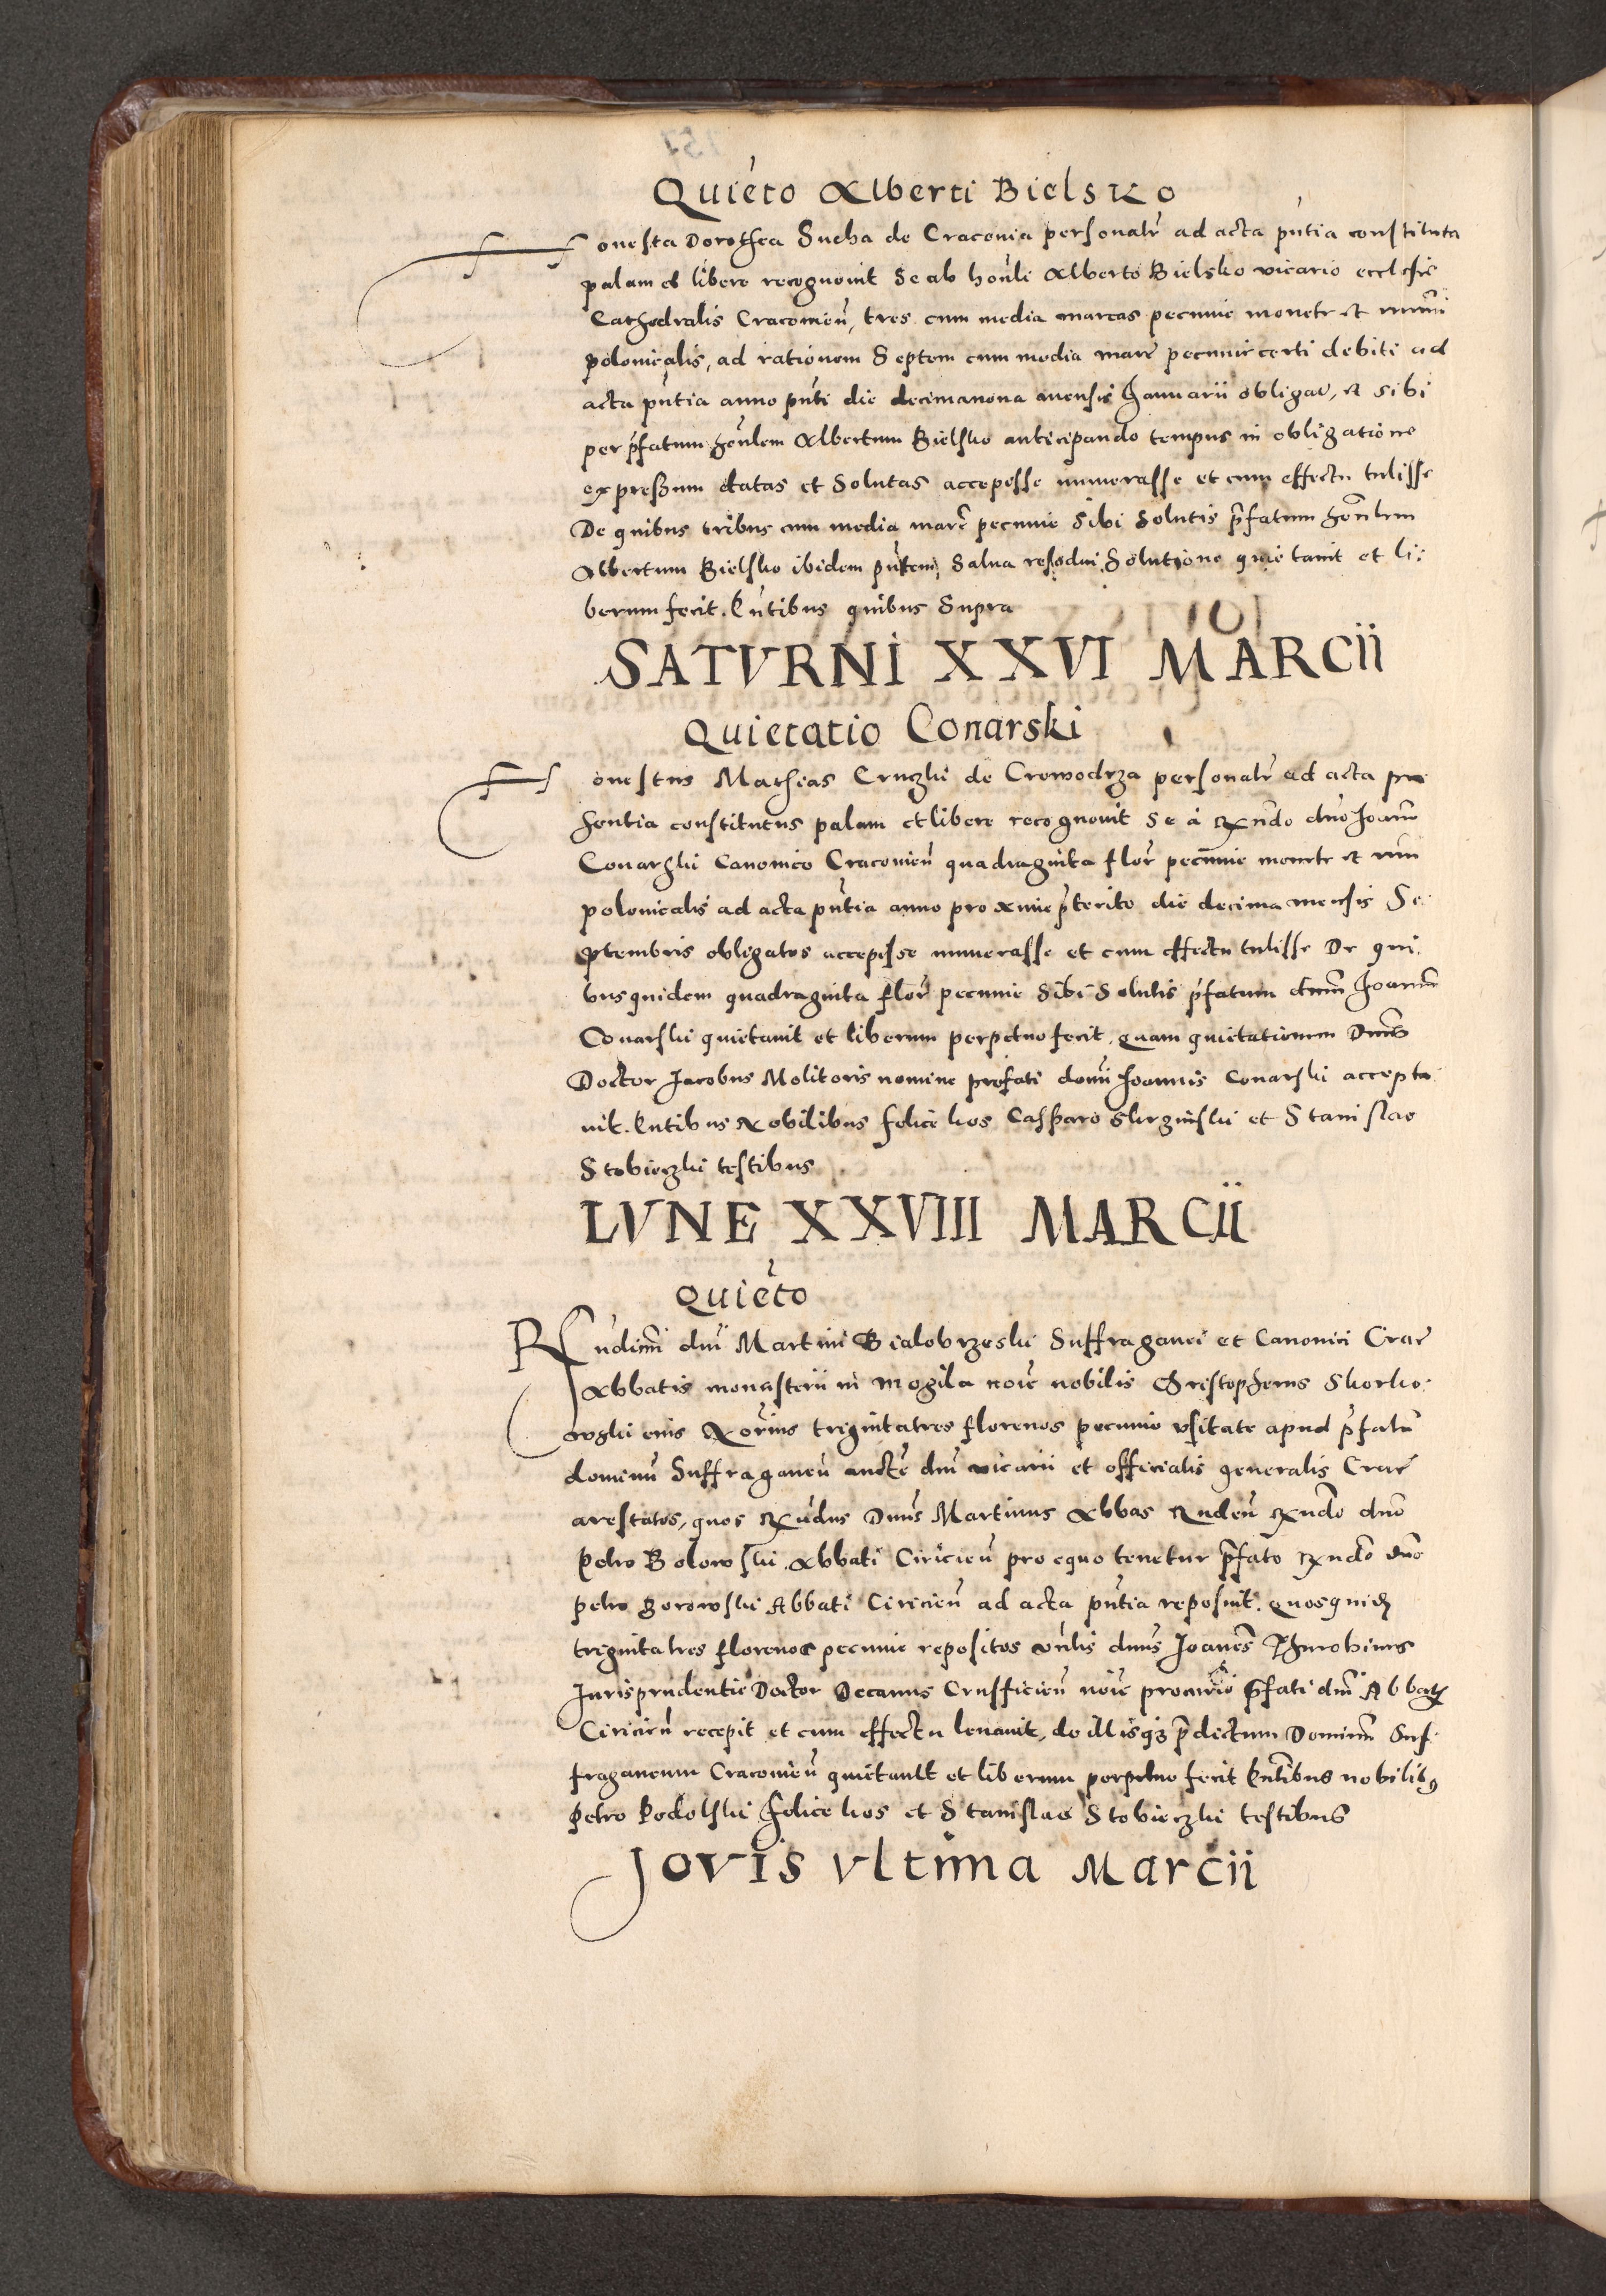 Quieto Alberti Bielsko
Honesta Dorothea Sucha de Craconia personalr ad acta pntia constituta
palam et libere recognovit Se ab honli Alberto Bielsko vicario ecclesie
Cathedralis Cracovien, tres cum media marcas pecunie monete et numi
polonicalis, ad rationem Septem cum media marc pecunie certi debiti ad
acta pntia anno pnti die decimanona mensis Januarii obligat, et sibi
per pfatum honlem Albertum Bielsko anticipando tempus in obligatione
expressum datas et Solutas accepesse numerasse et cum effectu tulisse
De quibus tribus cum media marc pecunie Sibi Solutis pfatum honlem
Albertum Bielsko ibidem pntem, Salva residui Solutione quietavit et li:
berum fecit. Pntibus quibus Supra
SATVRNI XXVI MARCII
Quietatio Conarski
Honestus Mathias Cruzki de Crowodrza personalr ad acta pre
sentia constitutus palam et libere recognovit Se à Rndo dno Joann
Conarski Canonico Cracovien quadraginta flor pecunie monete et num
polonicalis ad acta pntia anno proxime pterito die decima mensis Se
ptembris obligatos accepisse numerasse et cum effectu tulisse De qui
bus quidem quadraginta flor pecunie Sibi Solutis pfatum dnm Joannem
Conarski quietavit et liberum perpetuo fecit. quam quietationem Dnus
Doctor Jacobus Molitoris nomine prefati domi Joannis Conarski accepta
vit. Pntibus Nobilibus felice kos Casparo et Stanislao
Stobieczki testibus
LVNE XXVIII MARCII
quieto
Rndimi dni Martini Bialobrzeski Suffraganei et Canonici Crac
Abbatis monasterii in Mogila noie nobilis Christopherus Skorko:
wski eius trigintatres florenos pecunie usitate apud pfatu
dominu Suffraganeu aucte dni vicarii et officialis generalis Crac
arestatos, quos Rndus Dnus Martinus Abbas Rndo dno
Petro Borowski Abbati Ciricien pro equo tenetur pfato Rndo dno
petro Borowski Abbati Ciricien ad acta pntia reposuit. quosquid
trigintatres florenos pecunie repositos dnus Joanes
Jurisprudentie Doctor Decanus noie pfati dni Abbatis
Ciricien recepit et cum effectu levavit, de illisq predictum Dominum Suf
fraganeum Cracovien quietavit et liberum perpetuo fecit Pntibus nobilib9
petro Podolski felice kos et Stanislao Stobieczki testibus
Jovis vltima Marcii